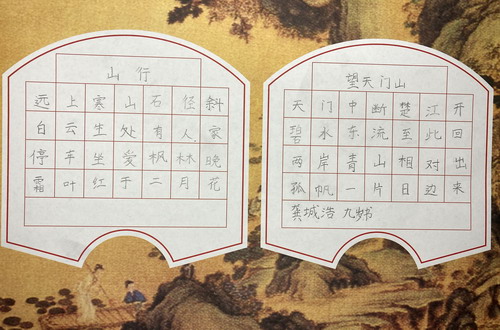 山行
远上寒山石径斜
白云生处有人家
停车坐爱枫林晚
霜叶红于二月花
望天门山
天门中断楚江开
碧水东流至此回
两岸青山相对出
孤帆一片日边来
龚城浩 九岁书